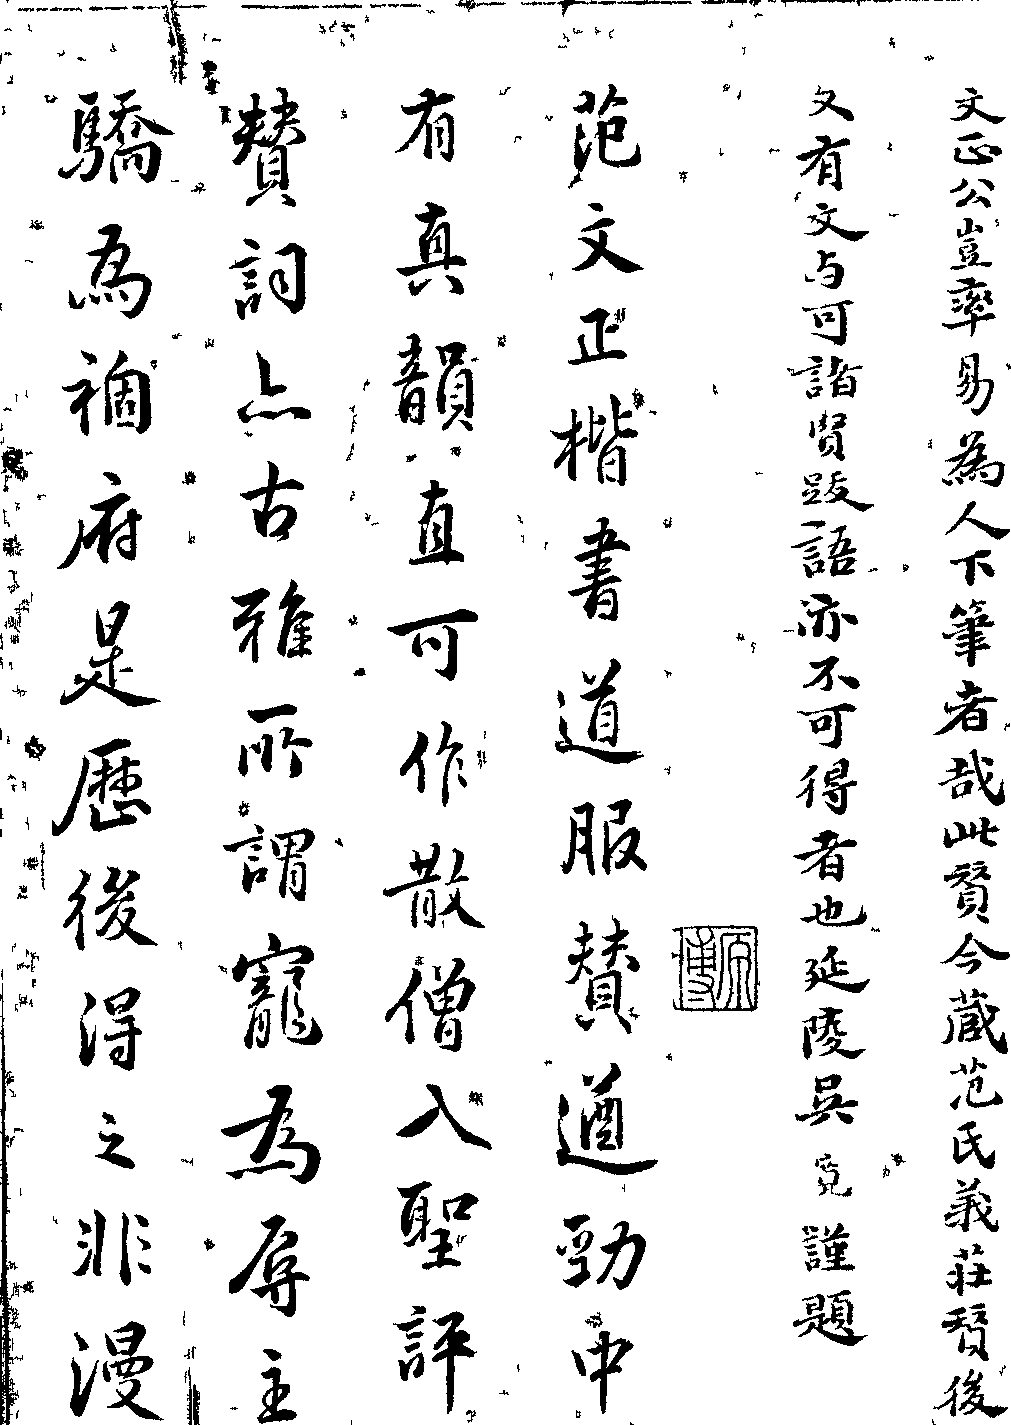 文正公豈率易為人下筆者哉此賛今藏范氏義莊賛後
又有文与可諸賢跋語亦不可得者也延陵吳寛謹題
范文正楷書道服賛遒勁中
有真韻直可作散僧入聖評
賛詞亦古雅所謂寵為辱主
驕為禍府是歷後得之非漫